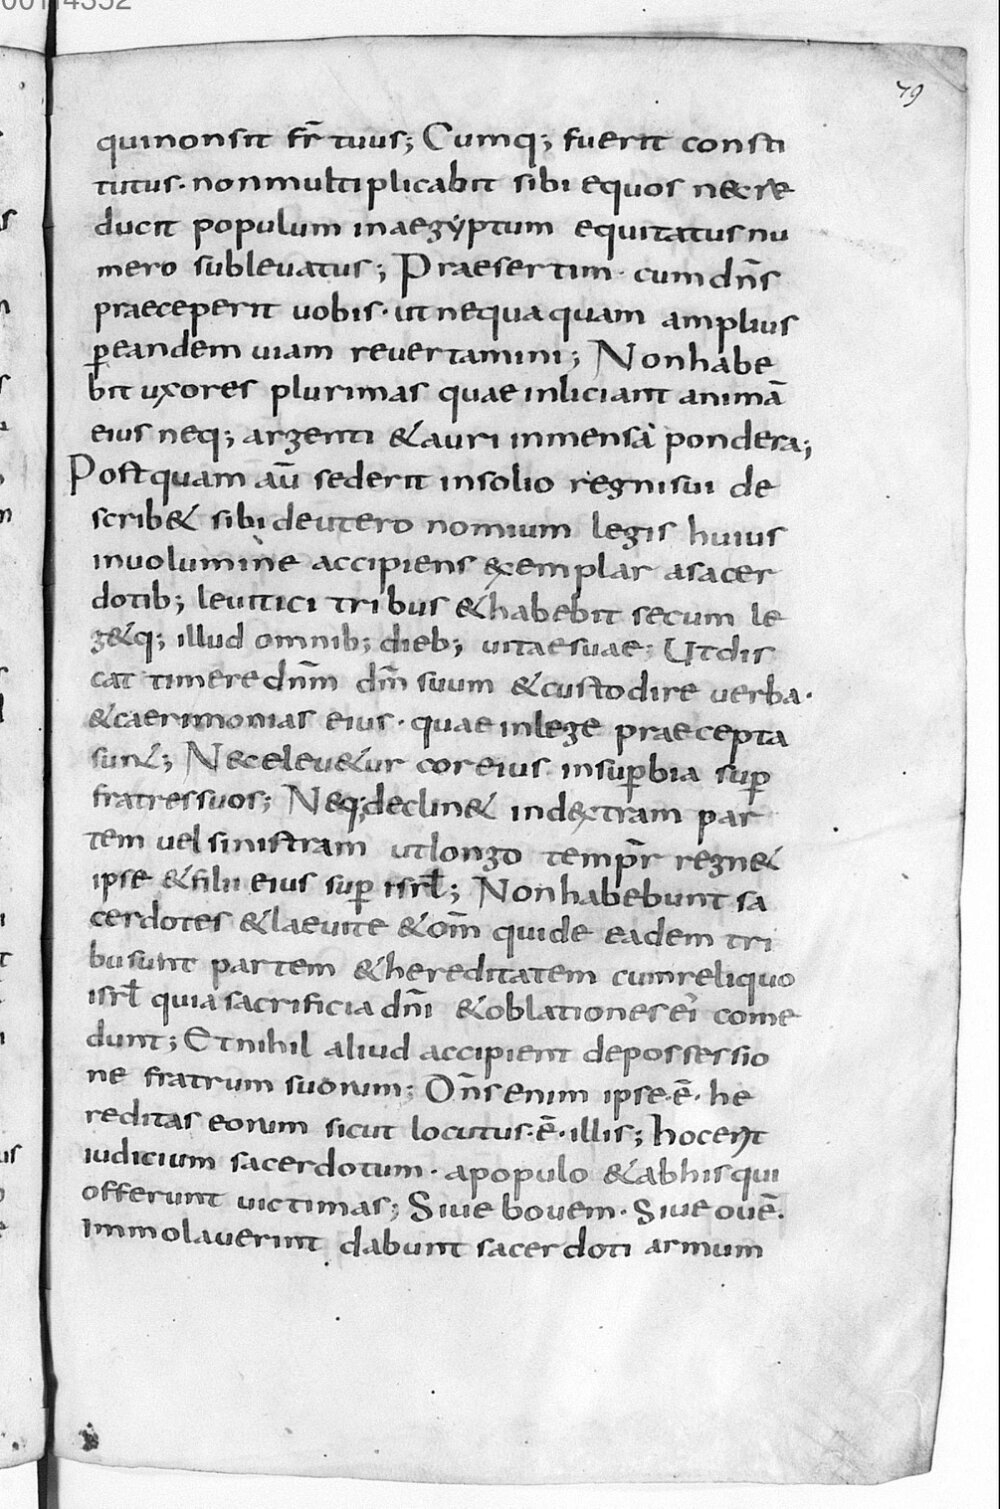 79
quinonsit fr̄ tuus; Cumq; fuerit consti
tutus· nonmultiplicabit sibi equos necre
ducit populum inaegyptum equitatusnu
mero sublevatus; Praesertim· cumdn̄s
praeceperit uobis· utnequaquam amplius
p̱eandem uiam revertamini; Nonhabe
bit uxores plurimas quaeinliciant animā
eius neq; argenti &auri inmensa pondera;
Postquam aū sederit insolio regnisui de
scrib& sibi deutero nomium legis huius
inuolumine accipiens exemplar asacer
dotib; leuitici tribus &habebit secum le
g&q; illud omnib; dieb; uitaesuae; Utdis
cat timere dn̄m dm̄ suum &custodire verba·
&caerimonias eius· quae inlege praecepta
sun&; Neceleu&ur coreius insup̱bia sup̱
fratressuos; Neq;declin& indextram par
tem uel sinistram utlongo temp̄r regn&
ipse &filii eius sup̱ isrl̄; Nonhabebunt sa
cerdotes &laeuite &om̄ quide eadem tri
busunt partem &hereditatem cumreliquo
isrl̄ quia sacrificia dn̄i &oblationes ei come
dunt; Etnihil aliud accipient depossessio
ne fratrum suorum; Dn̄s enim ipse·ē· he
reditas eorum sicut locutus·ē·illis; hocerit
iudicium sacerdotum· apopulo &abhisqui
offerunt uictimas; Siue bouem· Siue ouē·
immolauerint dabunt sacerdoti armum